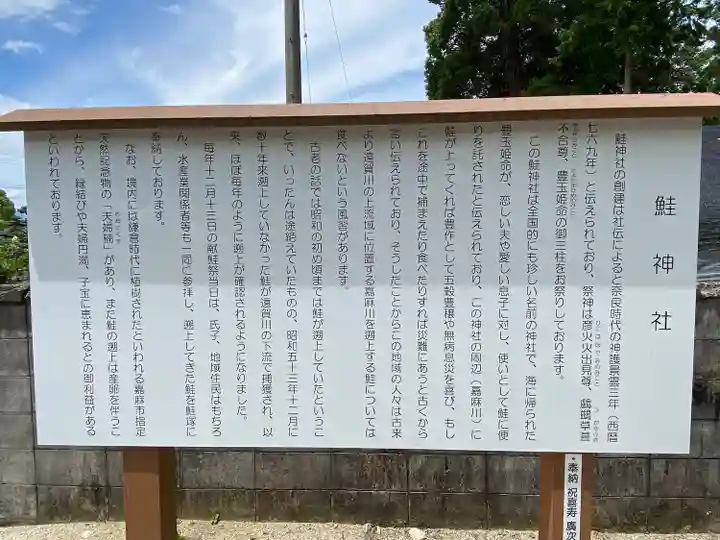 鮭神社
鮭神社の創建は社伝によると奈良時代の神護景雲三年(西暦
七六九年)と伝えられており、祭神は彦火火出見尊、鸕鷀草葺
不合尊、豊玉姫命の御三柱をお祭りしております。
この鮭神社は全国的にも珍しい名前の神社で、海に帰られた
豊玉姫命が、恋しい夫や愛しい息子に対し、使いとして鮭に便
りを託されたと伝えられており、この神社の周辺(嘉麻川)に
鮭が上ってくれば豊作として五穀豊穣や無病息災を喜び、もし
これを途中で捕まえたり食べたりすれば災難にあうと古くから
言い伝えられており、そうしたことからこの地域の人々は古来
より遠賀川の上流域に位置する嘉麻川を遡上する鮭については
食べないという風習があります。
古老の話では昭和の初め頃までは鮭が遡上していたというこ
とで、いったんは途絶えていたものの、昭和五十三年十二月に
数十年来遡上していなかった鮭が遠賀川の下流で捕獲され、以
来、ほぼ毎年のように遡上が確認されるようになりました。
毎年十二月十三日の献鮭祭当日は、氏子、地域住民はもちろ
ん、水産業関係者等も一同に参拝し、遡上してきた鮭を鮭塚に
奉納しております。
なお、境内には鎌倉時代に植樹されたといわれる嘉麻市指定
天然記念物の「夫婦楠」があり、また鮭の遡上は産卵を伴うこ
とから、縁結びや夫婦円満、子宝に恵まれるとの御利益がある
といわれております。
・奉納 祝喜寿 廣次